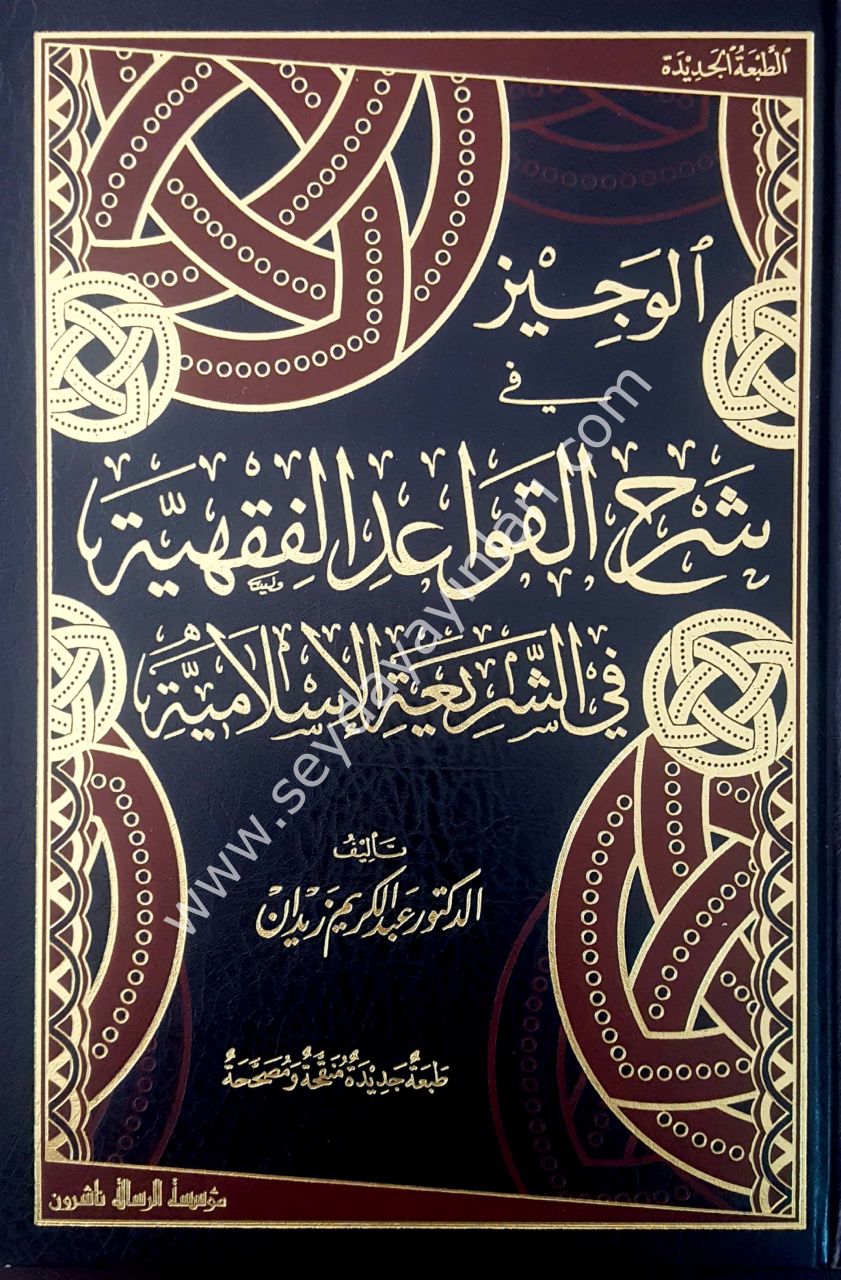 الطَّبْعَةُ الجَدِيْدَة
الوَجِيْز
في
شَرْحِ القَوَاعِدِ الفِقْهِيَّةِ
فِي الشَّرِيْعَةِ الإِسْلَامِيَّةِ
تَأليْفُ
الدكتور عَبد الكريم زَيْدَانْ
طَبعَةٌ جَدِيْدَةٌ مُنَقَّحَةٌ وَمُصَحَّحَةٌ
مؤسسة الرسالة ناشرون
www.seydayayinlari.com